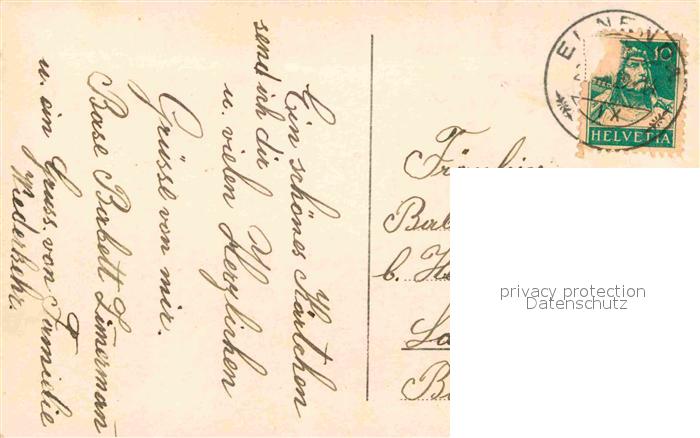 Ein schönes Kärtchen
send ich dir
u. vielen Herzlichen
Grüsse von mir.
Base Babett Zimerman
u. ein Gruss. von Familie
Wiederkehr.
Fräulein
b.
10
HELVETIA
privacy protection
Datenschutz